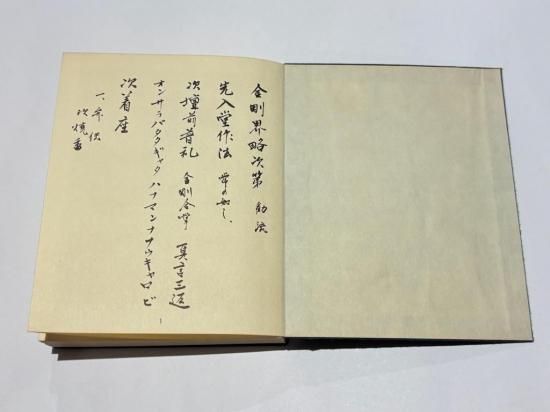 金剛界略次第
先入堂作法 常の如し、
次壇前普礼 金剛合掌 真言三遍
オンサラバタタギャタ ハナマンナナウキャロミ
次着座
一、
次焼香
1